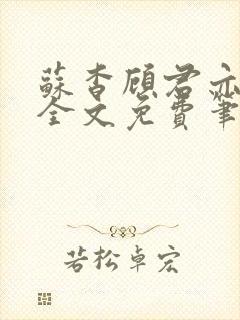 蘇杳顾君亦
全文免費筆
若松卓宏